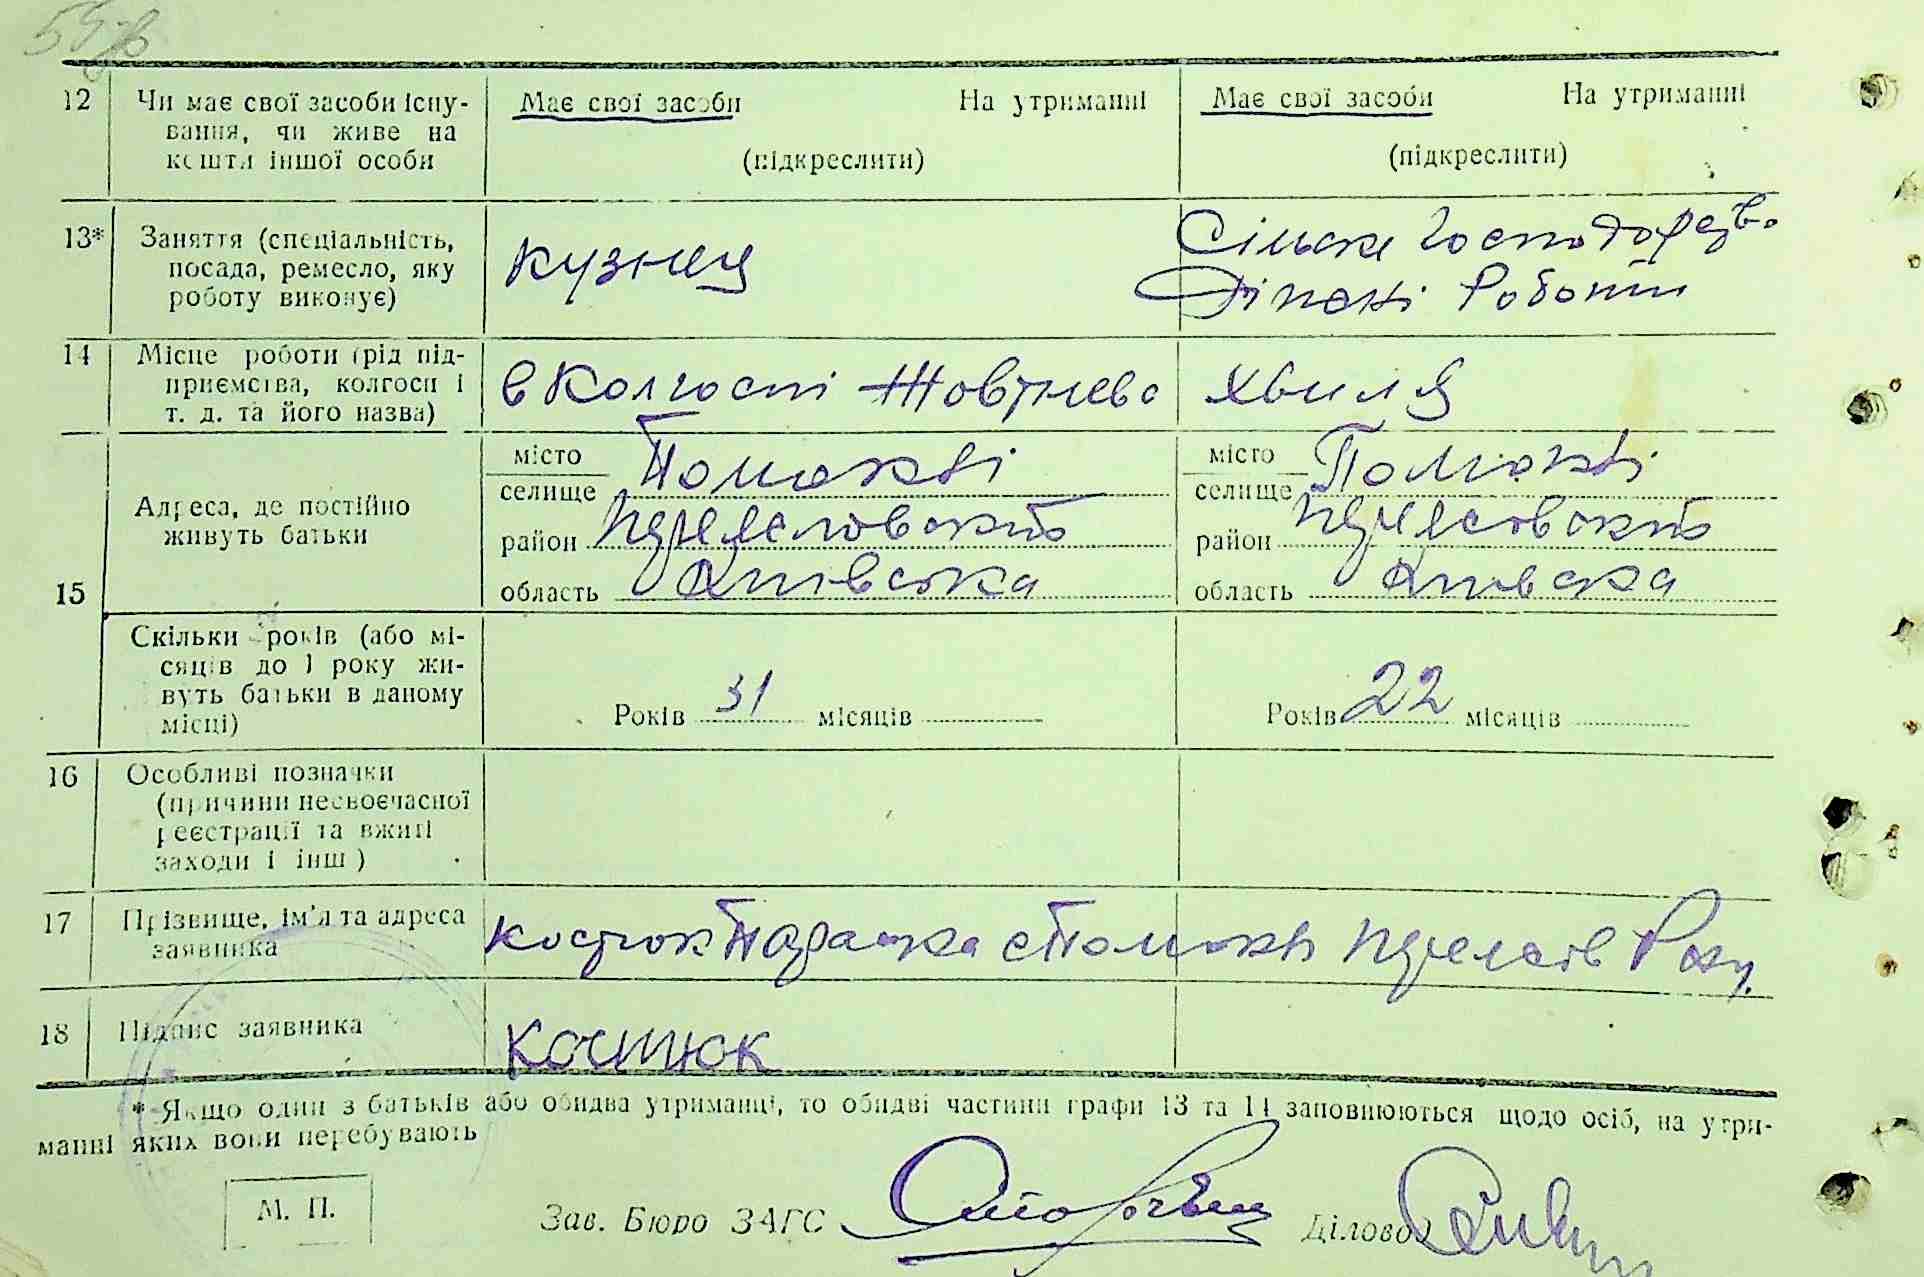 54 зв
12 Чи має свої засоби існу-
вання, чи живе на
кошти іншої особи
Має свої засоби На утриманні
(підкреслити)
Має свої засоби На утриманні
(підкреслити)
13* Заняття (спеціальність,
посада, ремесло, яку
роботу виконує)
кузнец
Сільске Господарство
Ріжні Роботи
14 Місце роботи (рід під-
приємства, колгосп і
т. д. та його назва)
в Колгоспі Жовтнева
Хвиля
15 Адреса, де постійно
живуть батьки
місто
селище Помоклі
район Переяславский
область Київська
місто
селище Помоклі
район
область Київска
Скільки років (або мі-
сяців до 1 року жи-
вуть батьки в даному
місці)
Років 31 місяців
Років 22 місяців
16 Особливі позначки
(причини несвоєчасної
реєстрації та вжиті
заходи і інш)
17 Прізвище, ім'я та адреса
заявника
Костюк Параска с Помоклі Переяслів Року.
18 Підпис заявника
Костюк
* Якщо один з батьків або обидва утриманці, то обидві частини графи 13 та 14 заповнюються щодо осіб, на утри-
манні яких вони перебувають
М. П.
Зав. Бюро ЗАГС
Діловод